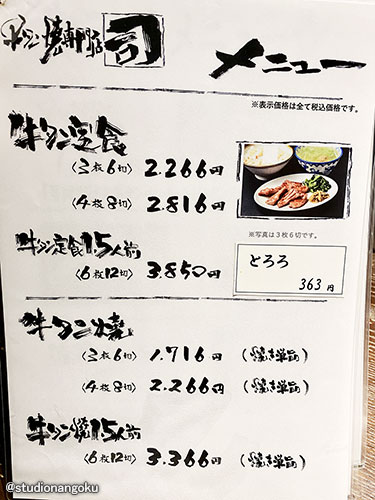 牛タン焼専門店 司
メニュー
※表示価格は全て税込価格です。
牛タン定食
〈3枚6切〉 2.266円
〈4枚8切〉 2.816円
※写真は3枚6切です。
牛タン定食1.5人前
〈6枚12切〉 3.850円
とろろ
363円
牛タン焼
〈3枚6切〉 1.716円 (焼き単品)
〈4枚8切〉 2.266円 (焼き単品)
牛タン焼1.5人前
〈6枚12切〉 3.366円 (焼き単品)
@studionangoku